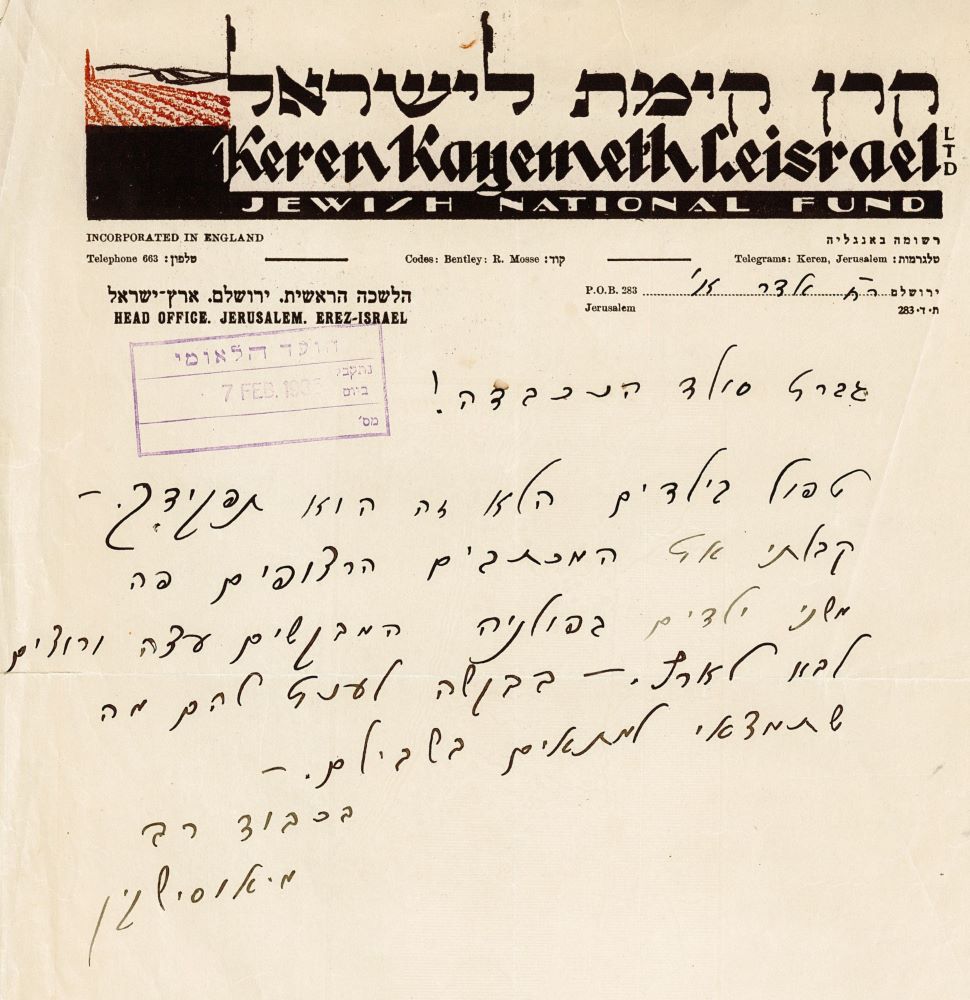 קרן קימת לישראל
Keren Kayemeth Leisrael LTD
JEWISH NATIONAL FUND
INCORPORATED IN ENGLAND רשומה באנגליה
Telephone 663 :טלפון Codes: Bentley: R. Mosse :קוד Telegrams: Keren, Jerusalem :טלגרמות
הלשכה הראשית. ירושלם. ארץ־ישראל
HEAD OFFICE. JERUSALEM. EREZ-ISRAEL
P.O.B. 283 אדר ירושלם
Jerusalem ת·ד·283
הועד הלאומי
נתקבל
ביום 7 FEB. 193
מס'
גברת סולד הנכבדה!
טפול בילדים הלא זה הוא תפקידך.–
קבלתי את המכתבים הרצופים פה
משני ילדים בפולניה המבקשים עצה ורוצים
לבא לארץ.– בבקשה לענות להם מה
שתמצאי למתאים בשבילם.–
בכבוד רב
מ. אוסישקין